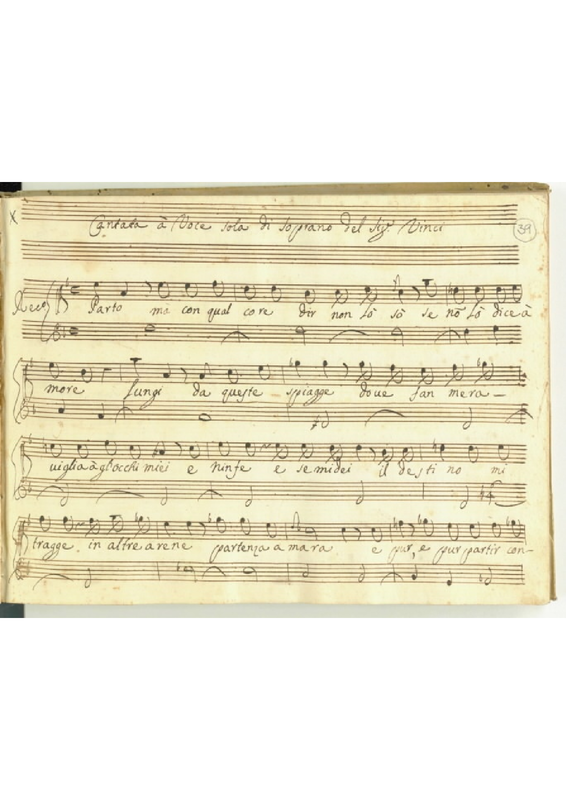 X
Cantata à Voce sola di Soprano del Sig.r Vinci
39
Rec.o Parto mà con qual core dir non sò sò se nõ lò dice à
more lungi da queste spiagge doue fan mera-
uiglia à gl'occhi miei e ninfe e semidei il destino mi
tragge in altre arene partenza amara e pur, e pur partir con-